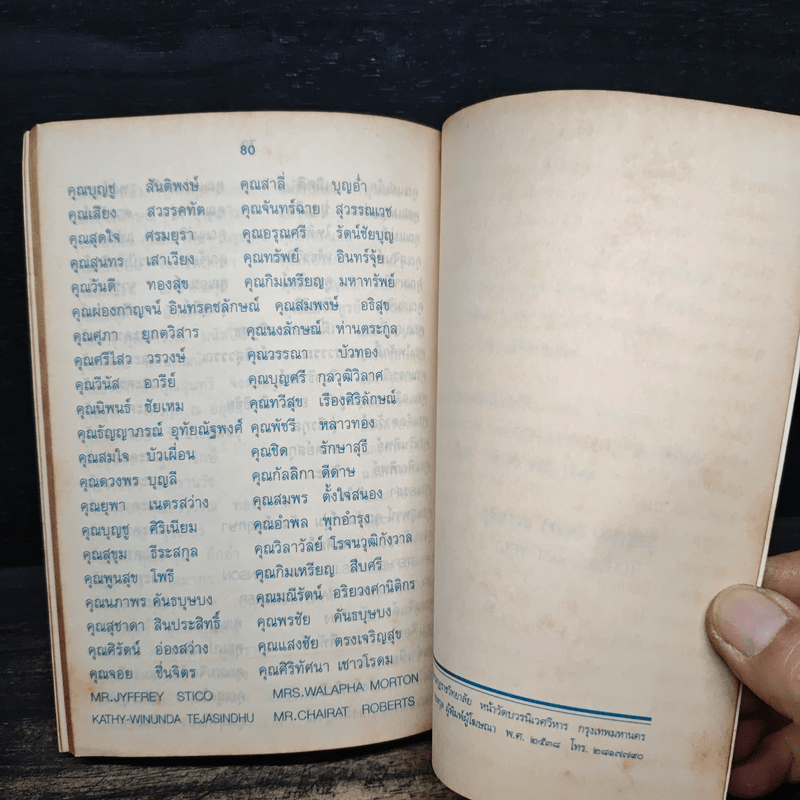 80
คุณบุญชู สันติพงษ์ คุณสาลี่ บุญอ่ำ
คุณเสียง สวรรคทัต คุณจันทร์ฉาย สุวรรณเวช
คุณสุดใจ ศรมยุรา คุณอรุณศรี รัตน์ชัยบุญ
คุณสุนทร เสาเวียง คุณทรัพย์ อินทร์จุ้ย
คุณวันดี ทองสุข คุณกิมเหรียญ มหาทรัพย์
คุณผ่องกาญจน์ อินทรคชลักษณ์ คุณสมพงษ์ อธิสุข
คุณศุภา ยุกตวิสาร คุณนงลักษณ์ ห่านตระกูล
คุณศรีไสว วรวงษ์ คุณวรรณา บัวทอง
คุณวีนัส อารีย์ คุณบุญศรี กุลวุฒิวิลาศ
คุณนิพนธ์ ชัยเหม คุณทวีสุข เรืองศิริลักษณ์
คุณธัญญาภรณ์ อุทัยณัฐพงศ์ คุณพัชรี หลาวทอง
คุณสมใจ บัวเผื่อน คุณชิต รักษาสุธี
คุณดวงพร บุญลี คุณกัลลิกา ดีด่าษ
คุณยุพา เนตรสว่าง คุณสมพร ตั้งใจสนอง
คุณบุญชู ศิริเนียม คุณอำพล พุกอำรุง
คุณสุขุม ธีระสกุล คุณวิลาวัลย์ โรจนวุฒิกังวาล
คุณพูนสุข โพธิ์ คุณกิมเหรียญ สืบศรี
คุณนภาพร คันธบุษบง คุณมณีรัตน์ อริยวงศานิติกร
คุณสุชาดา สินประสิทธิ์ คุณพรชัย คันธบุษบง
คุณศิรัตน์ อ่องสว่าง คุณแสงชัย ตรงเจริญสุข
คุณจอย ชื่นจิตร คุณศิริทัศนา เชาวโรดม
MR.JYFFREY STICO MRS.WALAPHA MORTON
KATHY-WINUNDA TEJASINDHU MR.CHAIRAT ROBERTS
ราชวิทยาลัย หน้าวัดบวรนิเวศวิหาร กรุงเทพมหานคร
ผู้พิมพ์ผู้โฆษณา พ.ศ. ๒๕๓๘ โทร. ๒๘๑๗๗๙๐